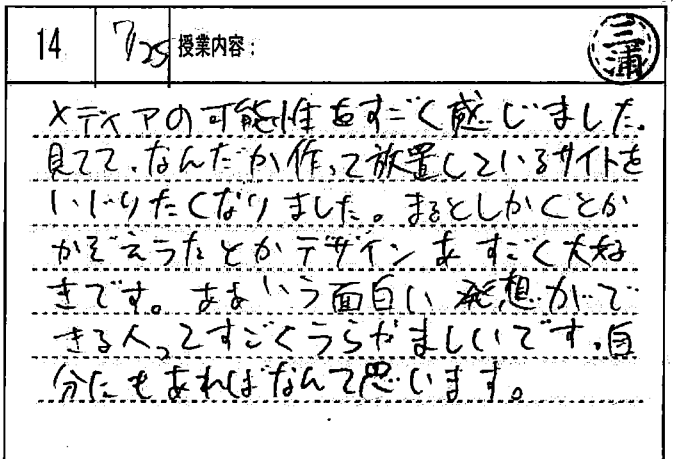 14 7/25 授業内容: 三浦
メディアの可能性をすごく感じました。
見てて、なんだか作って放置しているサイトを
いじりたくなりました。まるとしかくとか
かぞえうたとかデザインもすごく大好
きです。ああいう面白い発想がで
きる人ってすごくうらやましいです。自
分にもあればなんて思います。